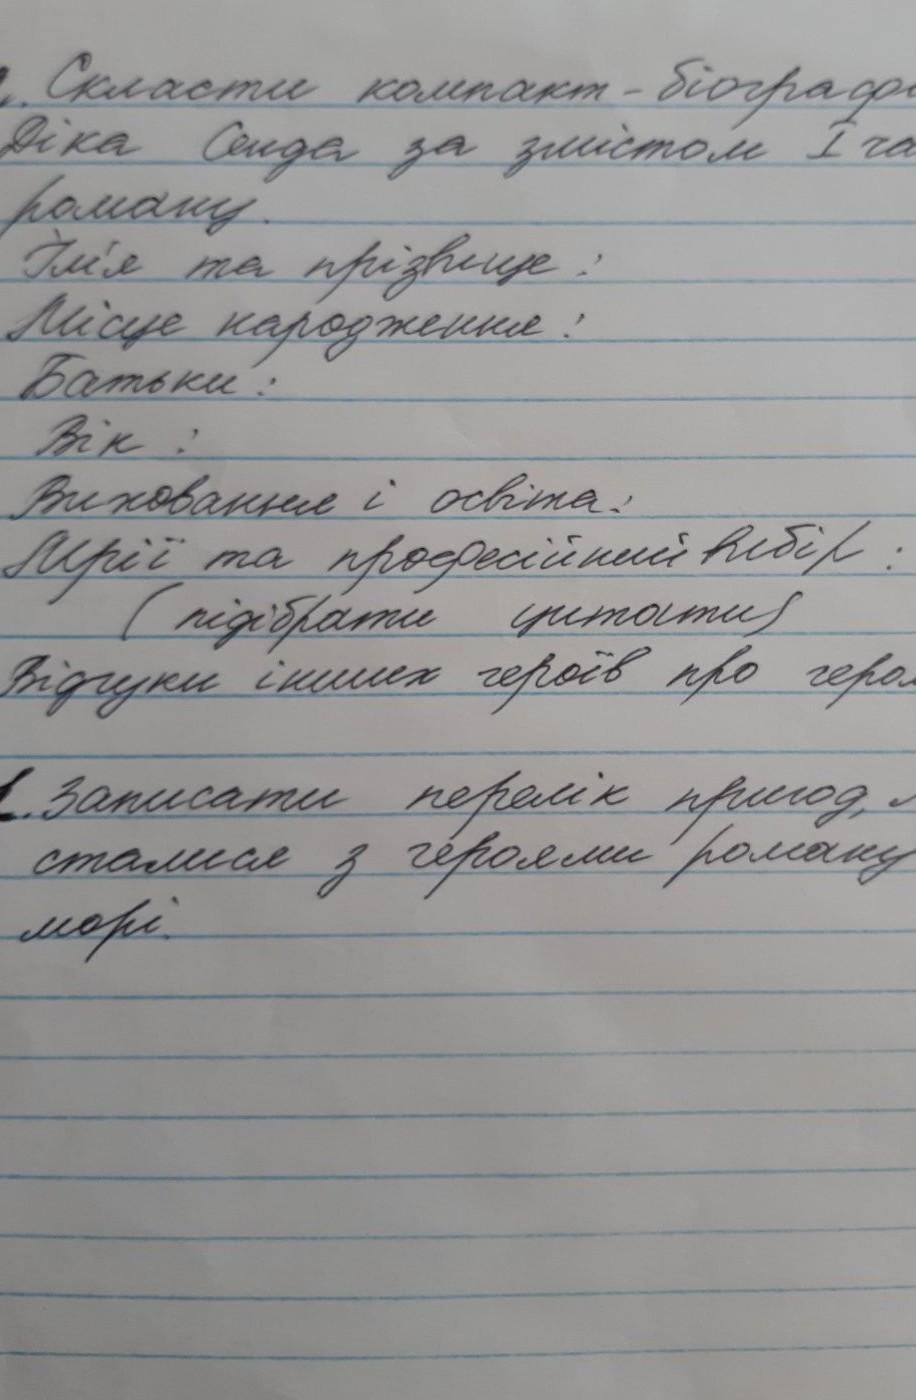 . Скласти компакт-біографі
Діка Сенда за змістом І ча
роману.
Ім'я та прізвище:
Місце народження:
Батьки:
Вік:
Виховання і освіта:
Мрії та професійний вибір:
(підібрати цитати)
Відгуки інших героїв про героя
. Записати перелік пригод,
сталися з героями роману
морі.